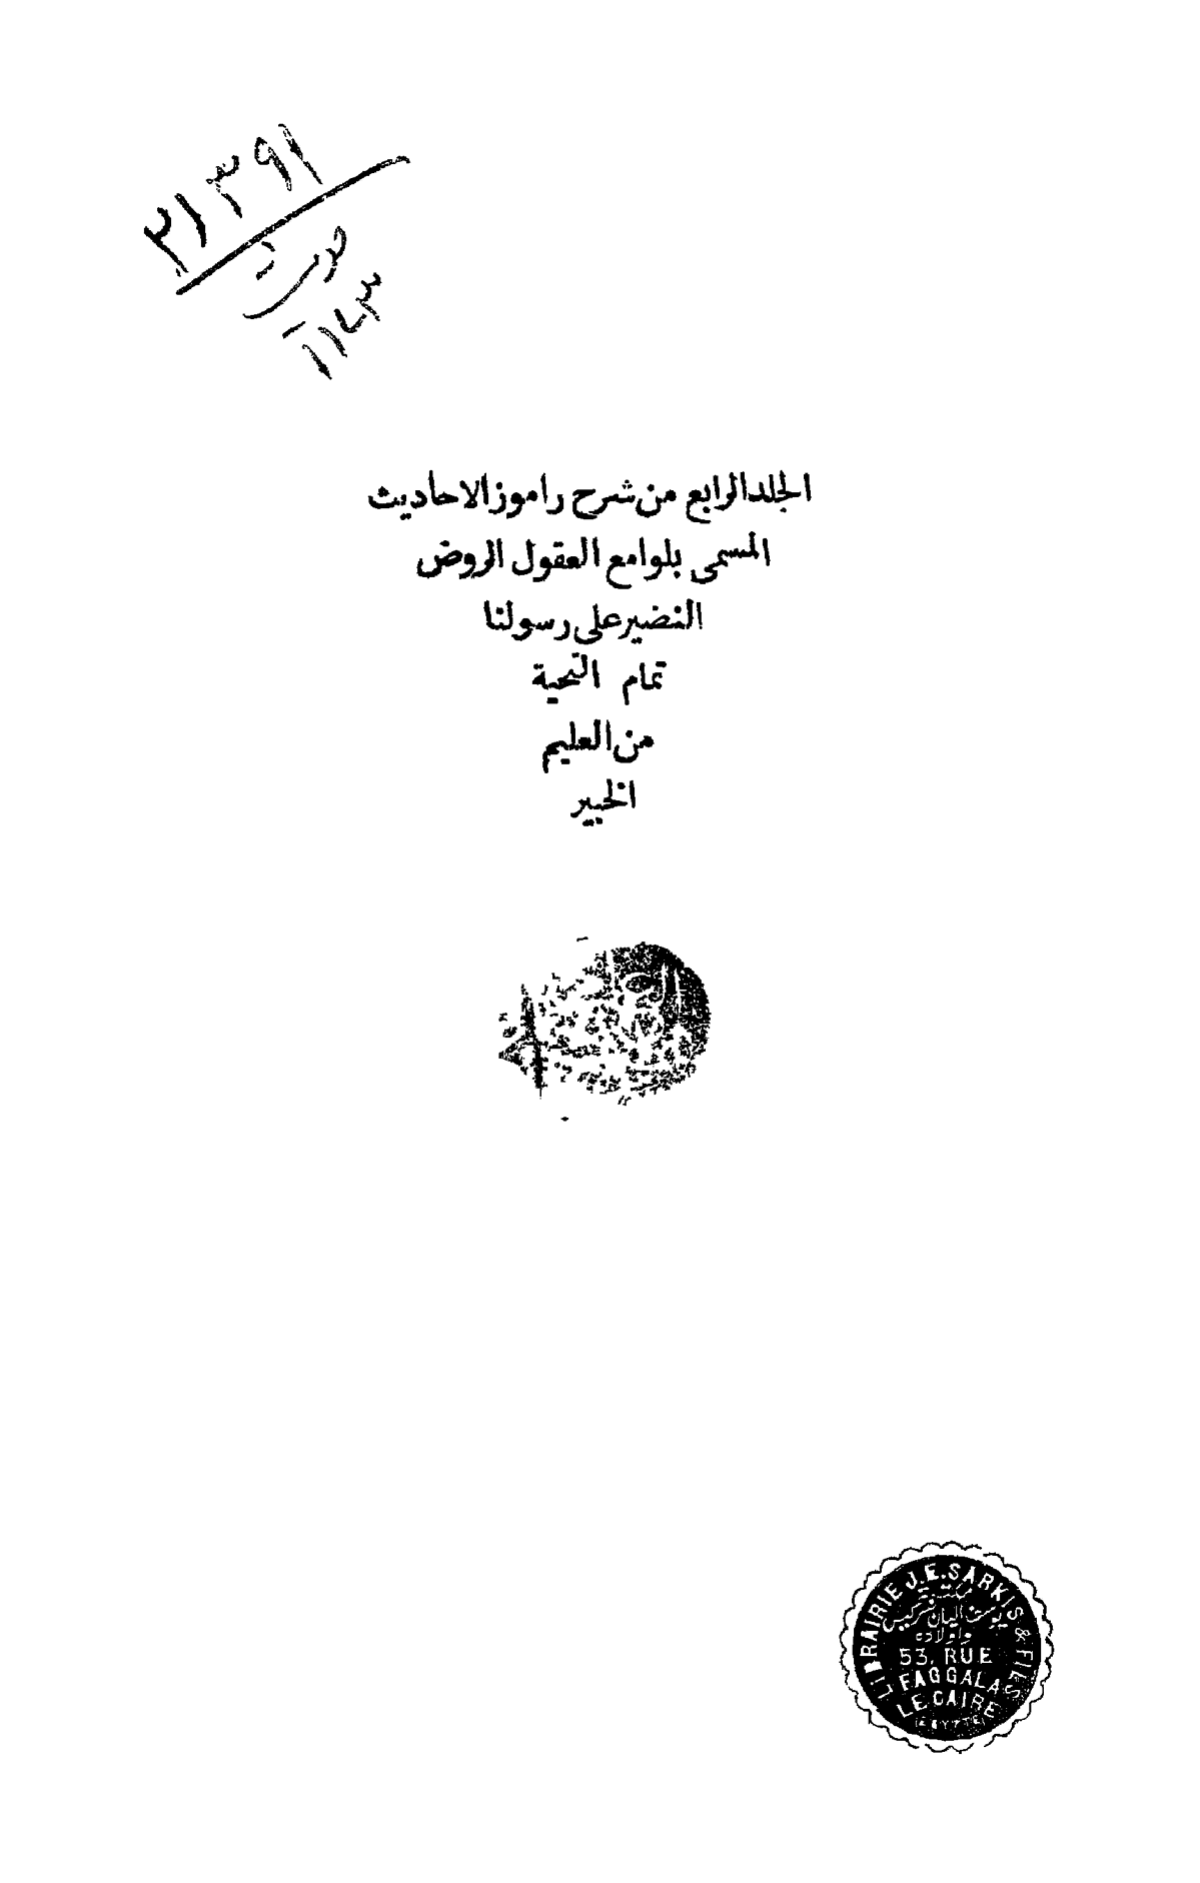 ٢١٣٩١
حديث
١١٤٣
الجلد الرابع من شرح راموز الاحاديث
المسمى بلوامع العقول الروض
النضير على رسولنا
تمام التحية
من العليم
الخبير
LIBRAIRIE J.E. SARKIS & FILS
مكتبة
يوسف اليان سركيس
واولاده
53, RUE
FAGGALA
LE CAIRE
(EGYPTE)